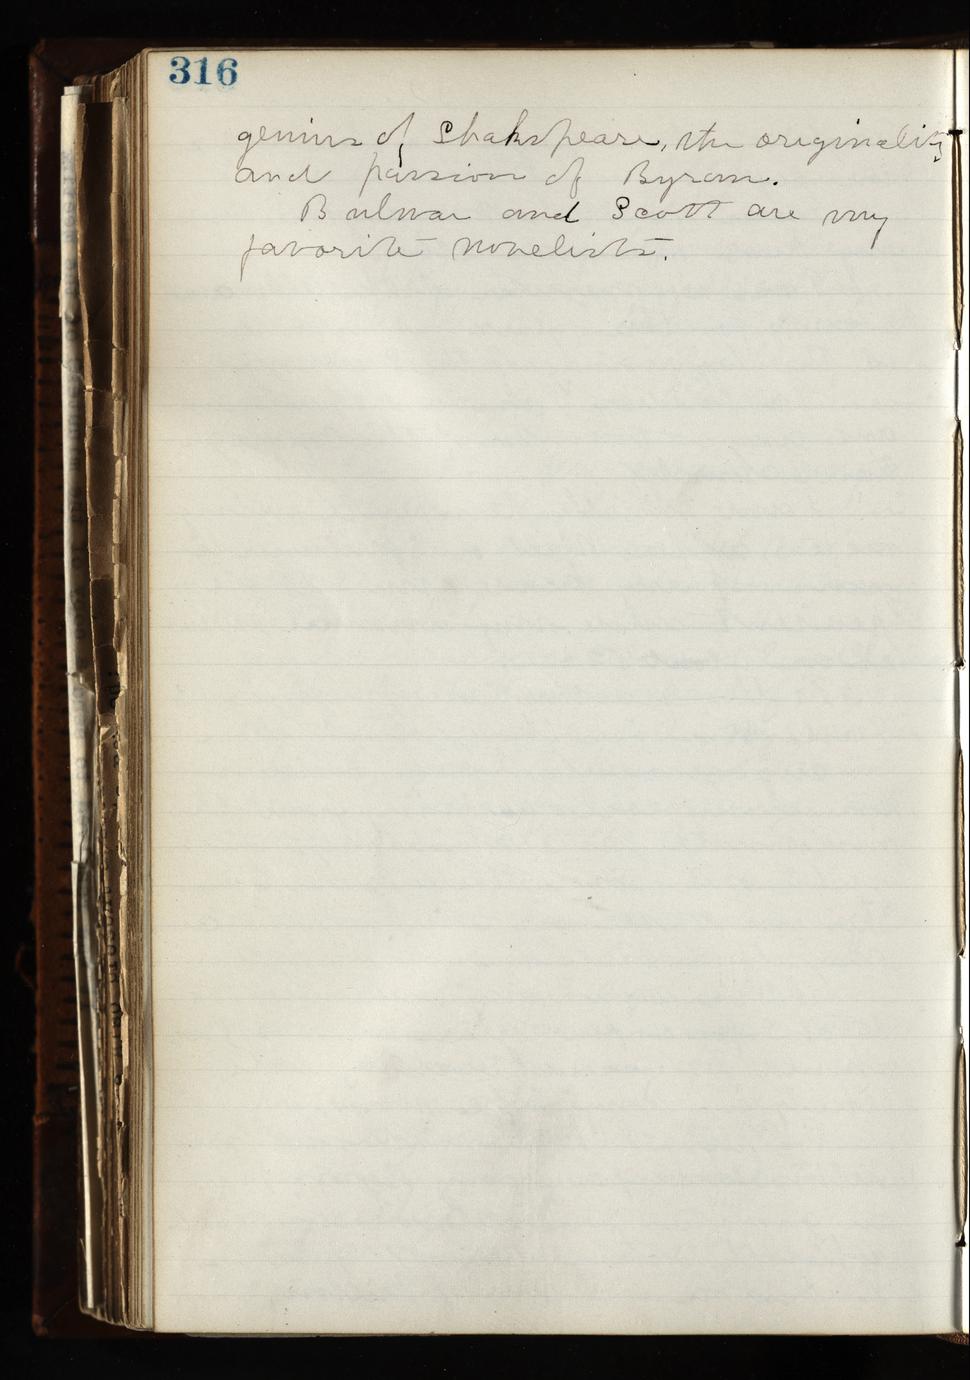 316
genius of Shakspeare, the originality
and passion of Byron.
Bulwar and Scott are my
favorite novelists.